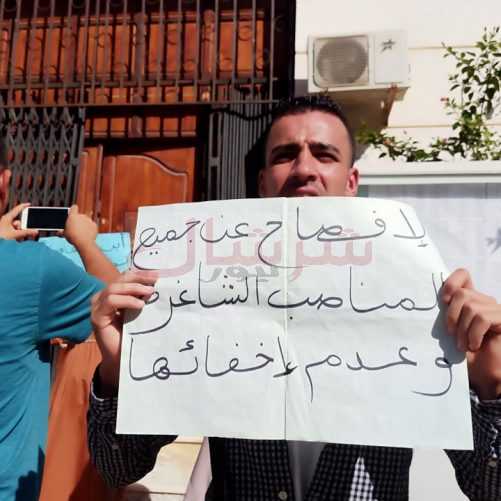 لإفصاح عن جميع
المناصب الشاغرة
و عدم إخفائها
شرشال
نيوز